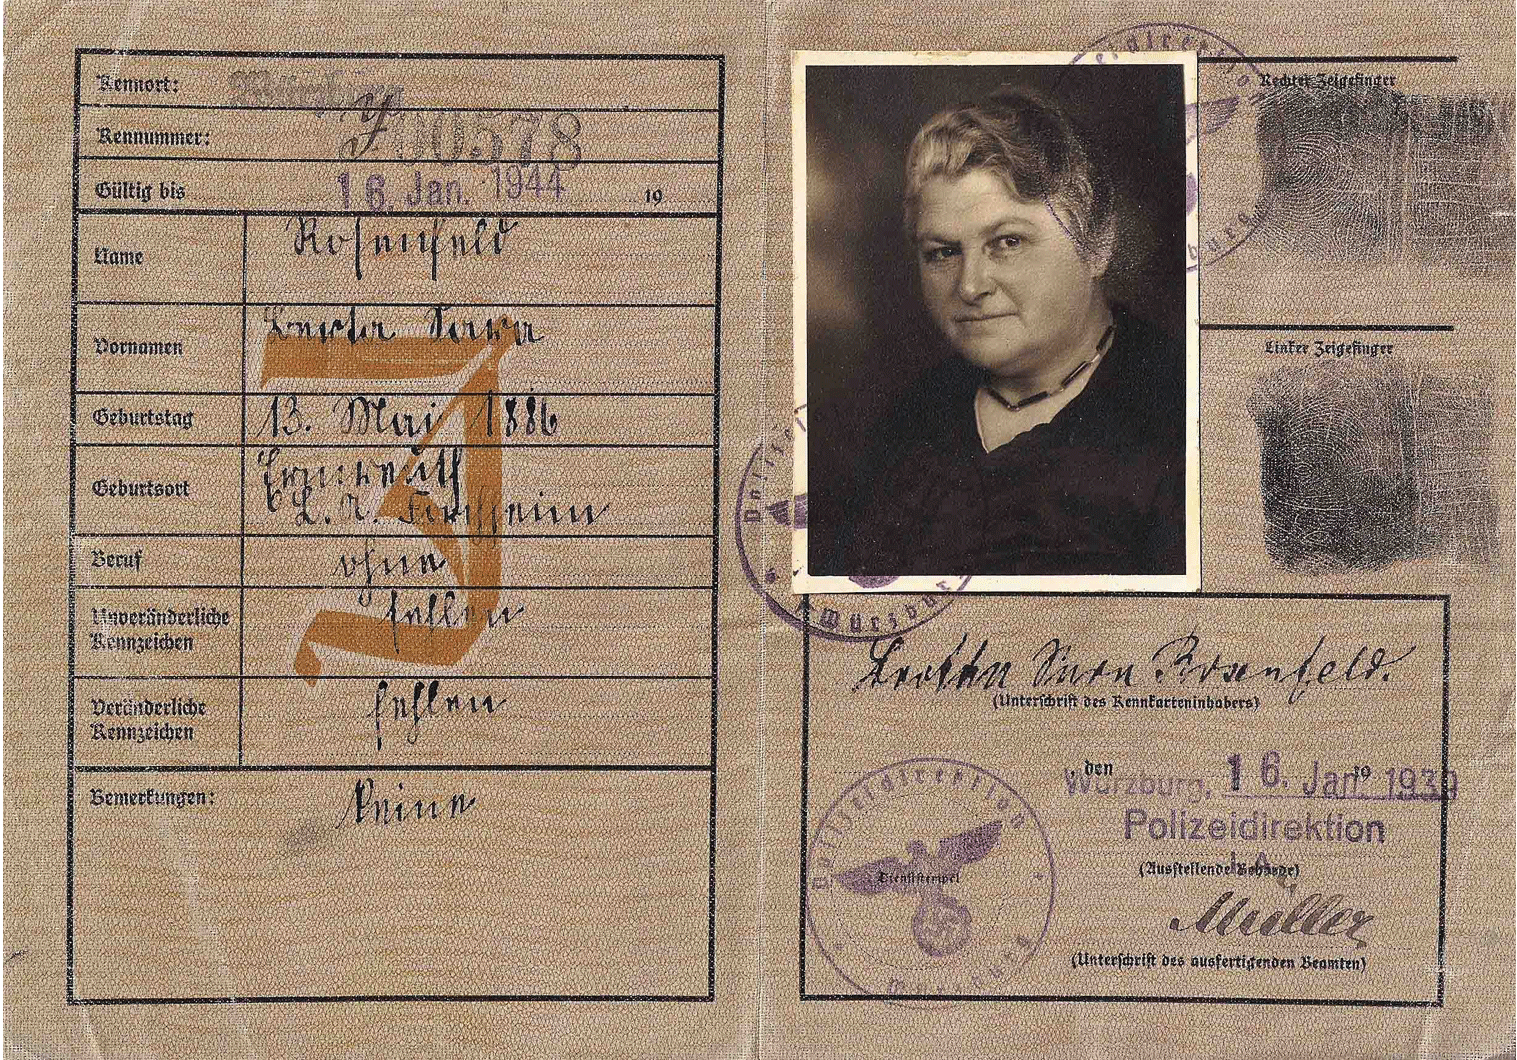 Kennort: Würzburg
Kennummer: J 00578
Gültig bis 16. Jan. 1944 19
Name Rosenfeld
Vornamen Berta Sara
Geburtstag 13. Mai 1886
Geburtsort Ermreuth
B. A. Forchheim
Beruf ohne
Unveränderliche
Kennzeichen fehlen
Veränderliche
Kennzeichen fehlen
Bemerkungen: keine
J
Polizeidirektion
Würzburg
Rechter Zeigefinger
Linker Zeigefinger
Polizeidirektion
Würzburg
Sara Rosenfeld.
(Unterschrift des Kennkarteninhabers)
Würzburg, den 16. Jan. 19 1939
Polizeidirektion
I. A.
(Ausstellende Behörde)
Müller
(Unterschrift des ausfertigenden Beamten)
Polizeidirektion
Dienststempel
Würzburg